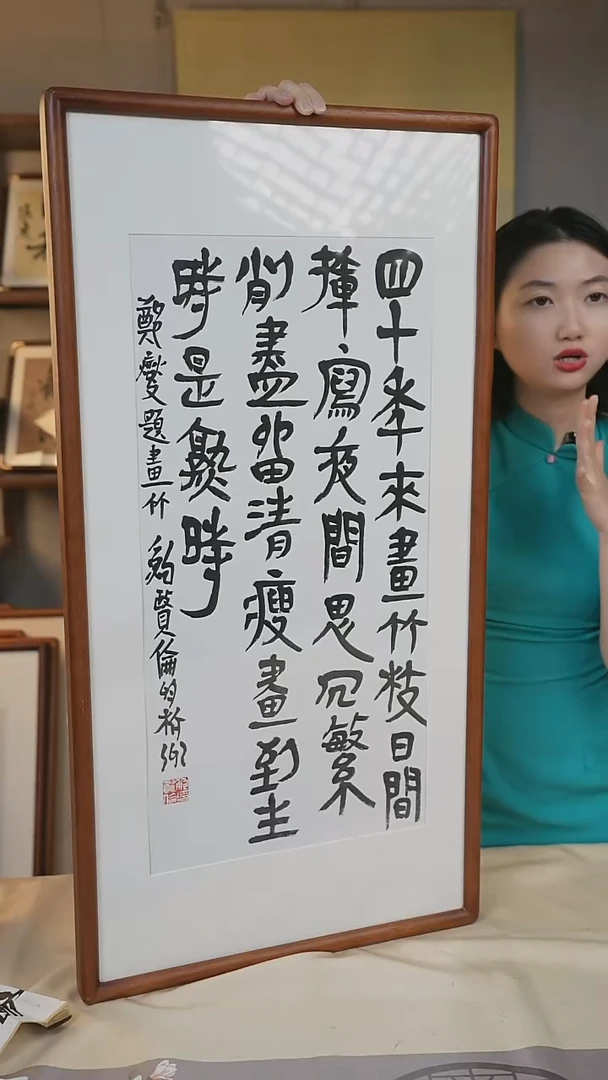 四十年來畫竹枝日間
揮寫夜間思冗繁
削盡留清瘦畫到生
時是熟時
鄭燮題畫竹 賢倫